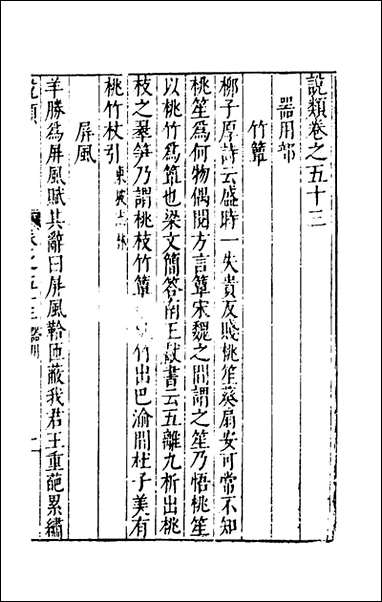 說類卷之五十三
器用部
竹簟
柳子厚詩云盛時一失貴反賤桃笙葵扇安可常不知
桃笙爲何物偶閱方言簟宋魏之間謂之笙乃悟桃笙
以桃竹爲簟也梁文簡答南王獻書云五離九析出桃
枝之翠笋乃謂桃枝竹簟 竹出巴渝間杜子美有
桃竹杖引東坡志林
屏風
羊勝爲屏風賦其辭曰屏風鞈匝蔽我君王重葩累繡
說類 卷之五十三 器用 一